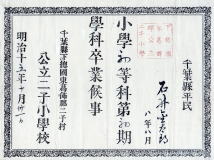 千葉縣平民
石井
八年八月
小學初等科第初期
學科卒業候事
千葉縣下總國東葛飾郡二子村
公立二子小學校
明治十五年十月廿一日